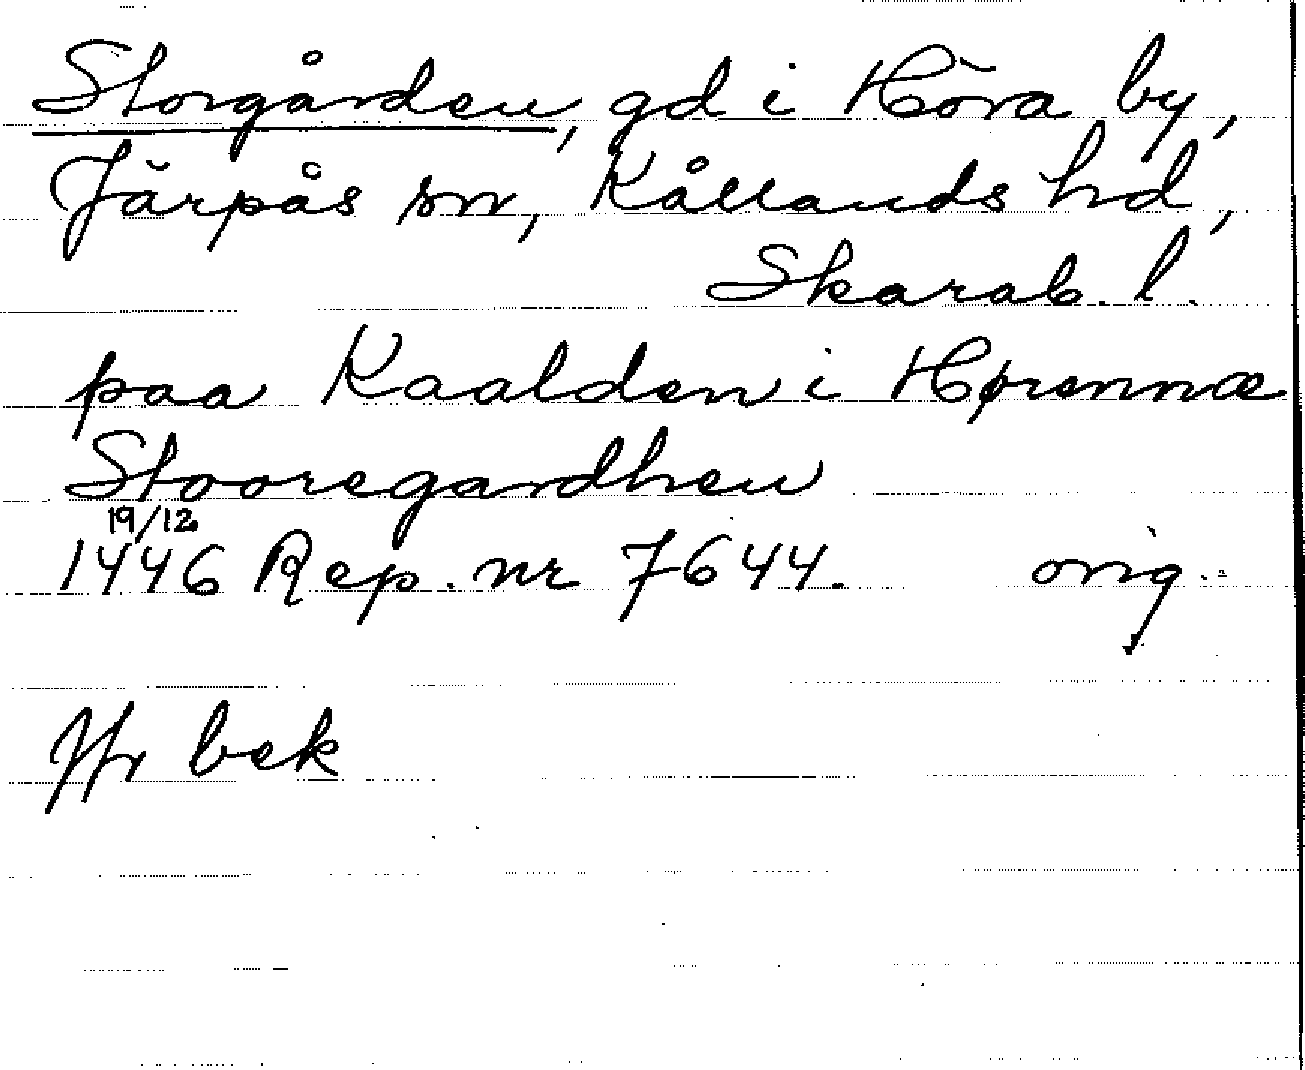 Storgården, gd i Höra by,
Järpås sn, Kållands hd,
Skarab. l.
paa Kaalden i Hørennæ
Stooregardhen
19/12
1446 Rep. nr 7644. orig.
Jfr bek